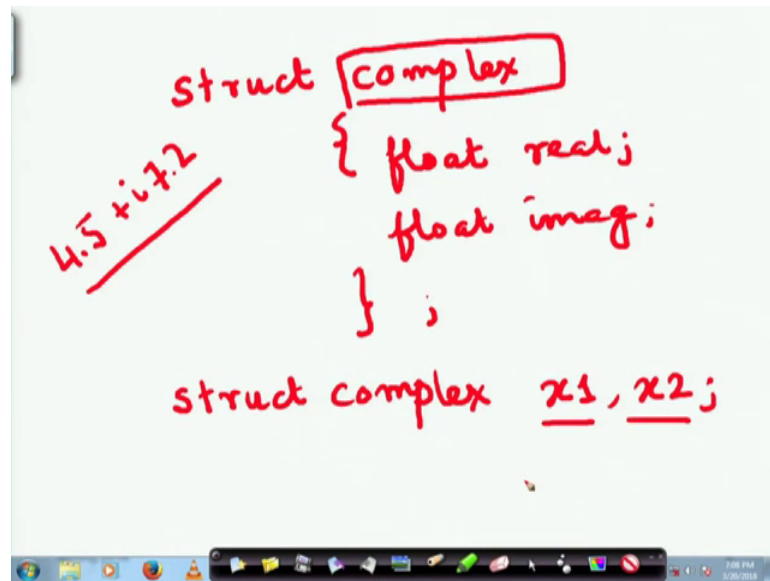 struct complex
{ float real;
float imag;
} ;
4.5 + i7.2
struct complex x1, x2;
7:08 PM
3/20/2018